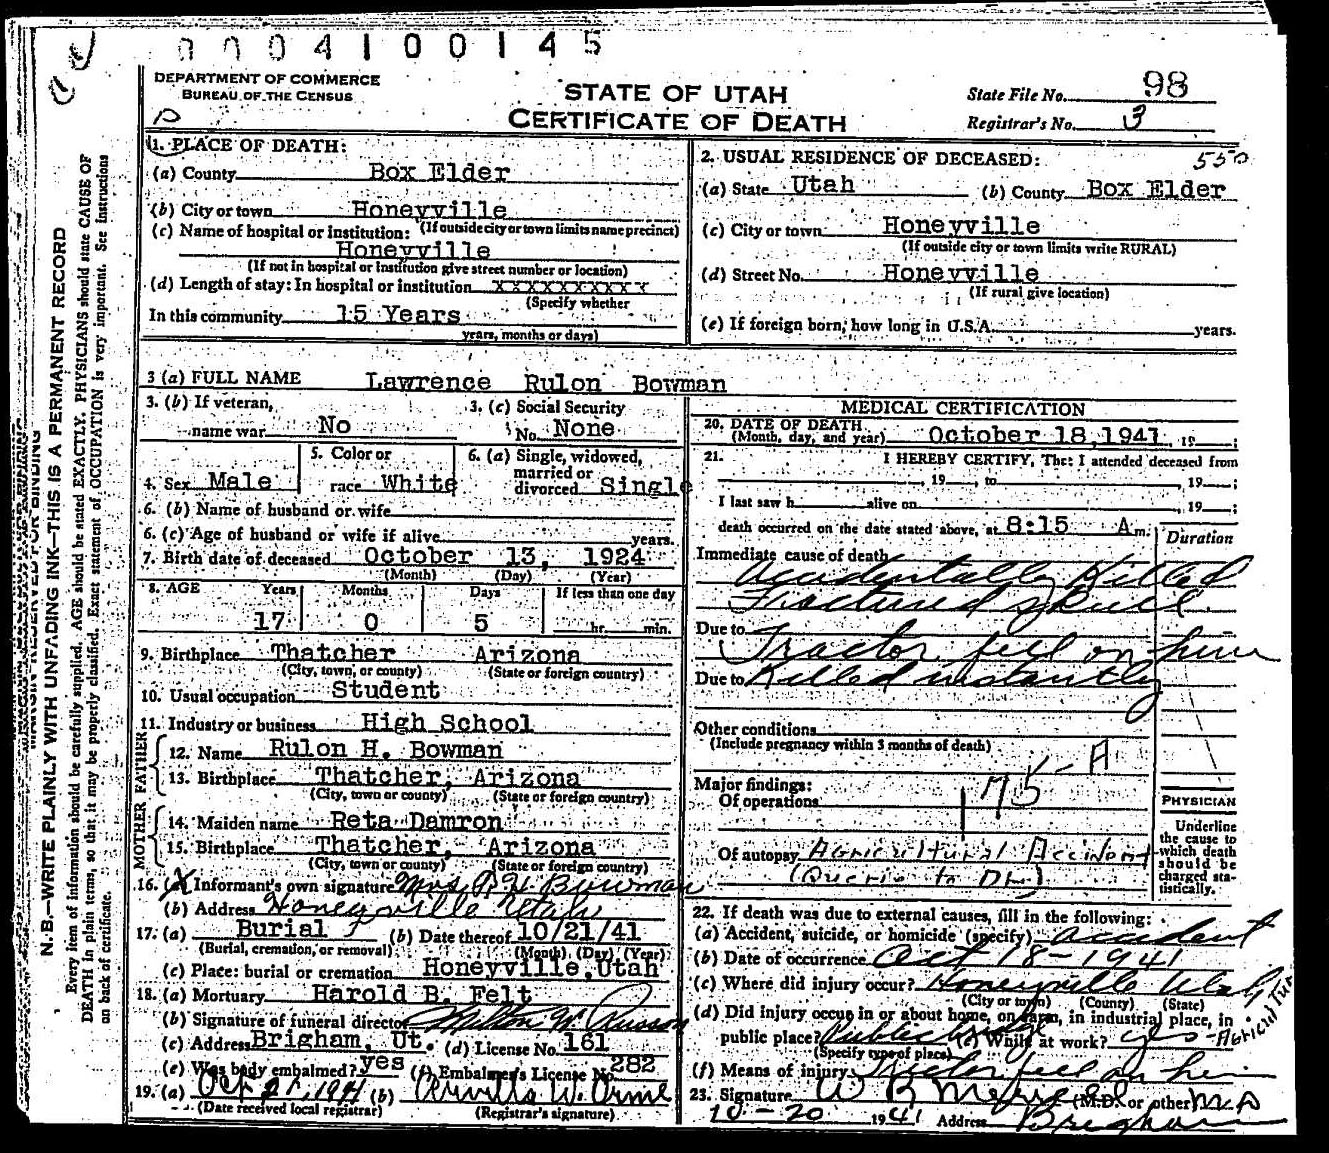 0004100145
DEPARTMENT OF COMMERCE
BUREAU OF THE CENSUS
STATE OF UTAH
CERTIFICATE OF DEATH
State File No. 98
Registrar's No. 3
N. B.—WRITE PLAINLY WITH UNFADING INK—THIS IS A PERMANENT RECORD
Every item of information should be carefully supplied. AGE should be stated EXACTLY. PHYSICIANS should state CAUSE OF
DEATH in plain terms, so that it may be properly classified. Exact statement of OCCUPATION is very important. See Instructions
on back of certificate.
1. PLACE OF DEATH:
(a) County Box Elder
(b) City or town Honeyville
(If outside city or town limits name precinct)
(c) Name of hospital or institution:
Honeyville
(If not in hospital or institution give street number or location)
(d) Length of stay: In hospital or institution xxxxxxxxxx
(Specify whether
In this community 15 Years
years, months or days)
2. USUAL RESIDENCE OF DECEASED: 550
(a) State Utah (b) County Box Elder
(c) City or town Honeyville
(If outside city or town limits write RURAL)
(d) Street No. Honeyville
(If rural give location)
(e) If foreign born, how long in U.S.A. years.
3 (a) FULL NAME Lawrence Rulon Bowman
3. (b) If veteran,
name war No
3. (c) Social Security
No. None
4. Sex Male
5. Color or
race White
6. (a) Single, widowed,
married or
divorced Single
6. (b) Name of husband or wife
6. (c) Age of husband or wife if alive years.
7. Birth date of deceased October 13, 1924
(Month) (Day) (Year)
8. AGE Years Months Days If less than one day
17 0 5 hr. min.
9. Birthplace Thatcher Arizona
(City, town, or county) (State or foreign country)
10. Usual occupation Student
11. Industry or business High School
FATHER
12. Name Rulon H. Bowman
13. Birthplace Thatcher, Arizona
(City, town or county) (State or foreign country)
MOTHER
14. Maiden name Reta Damron
15. Birthplace Thatcher, Arizona
(City, town or county) (State or foreign country)
16. (a) Informant's own signature Mrs R H Bowman
(b) Address Honeyville Utah
17. (a) Burial (b) Date thereof 10/21/41
(Burial, cremation, or removal) (Month) (Day) (Year)
(c) Place: burial or cremation Honeyville, Utah
18. (a) Mortuary Harold B. Felt
(b) Signature of funeral director
(c) Address Brigham, Ut. (d) License No. 161
(e) Was body embalmed? yes (f) Embalmer's License No. 282
19. (a) 1941 (b) W. Orme
(Date received local registrar) (Registrar's signature)
MEDICAL CERTIFICATION
20. DATE OF DEATH
(Month, day, and year) October 18, 1941, 19 ;
21. I HEREBY CERTIFY, That I attended deceased from
, 19 , to , 19 ;
I last saw h alive on , 19 ;
death occurred on the date stated above, at 8:15 A m.
Duration
Immediate cause of death
Accidentally Killed
Fractured skull
Due to Tractor fell on him
Due to Killed instantly
Other conditions
(Include pregnancy within 3 months of death)
Major findings:
Of operations
175-A
Of autopsy Agricultural Accident
(Querie to Dr)
PHYSICIAN
Underline
the cause to
which death
should be
charged sta-
tistically.
22. If death was due to external causes, fill in the following:
(a) Accident, suicide, or homicide (specify) accident
(b) Date of occurrence Oct 18-1941
(c) Where did injury occur? Honeyville Utah
(City or town) (County) (State)
(d) Did injury occur in or about home, on farm, in industrial place, in
public place? Public bridge (e) While at work? yes-
(Specify type of place)
(f) Means of injury Tractor fell on him
23. Signature W R Merrell (M.D. or other) M D
10-20 1941 Address Brigham